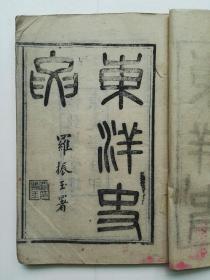 東洋史
要
羅振玉署